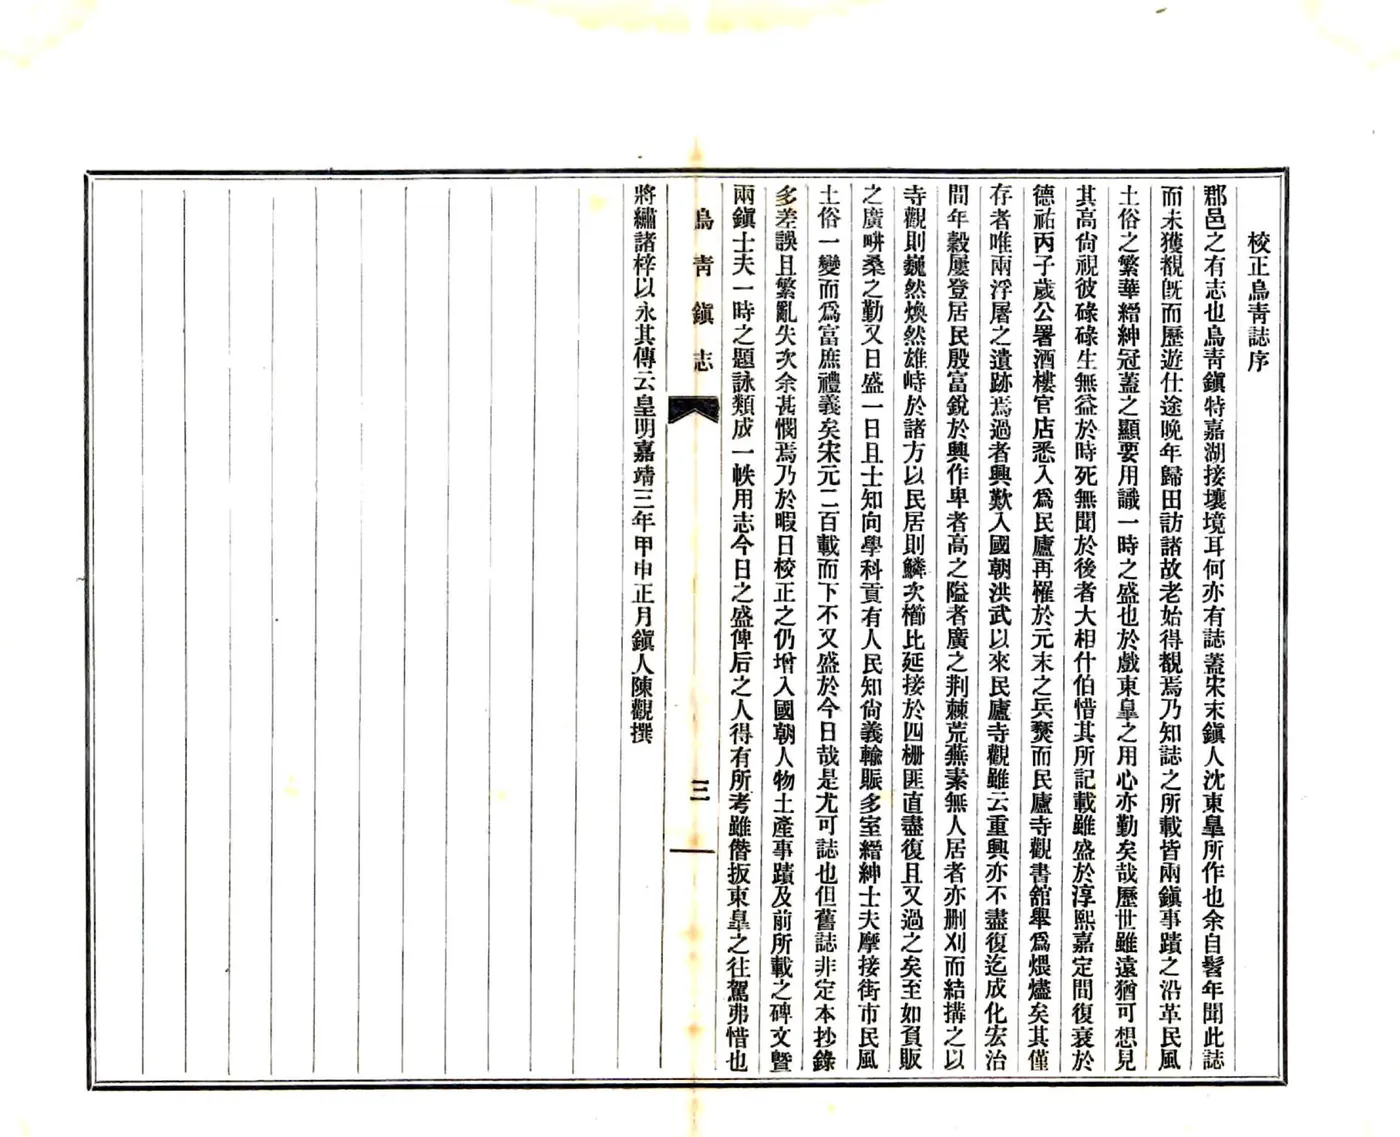 校正烏青誌序
郡邑之有志也烏青鎭特嘉湖接壤境耳何亦有誌蓋宋末鎭人沈東臯所作也余自髫年聞此誌
而未獲覩旣而歷遊仕途晚年歸田訪諸故老始得覩焉乃知誌之所載皆兩鎭事蹟之沿革民風
土俗之繁華縉紳冠蓋之顯要用識一時之盛也於戲東臯之用心亦勤矣哉歷世雖遠猶可想見
其高尙視彼碌碌生無益於時死無聞於後者大相什伯惜其所記載雖盛於淳熙嘉定間復衰於
德祐丙子歲公署酒樓官店悉入爲民廬再罹於元末之兵燹而民廬寺觀書舘舉爲煨燼矣其僅
存者唯兩浮屠之遺跡焉過者興歎入國朝洪武以來民廬寺觀雖云重興亦不盡復迄成化宏治
間年穀屢登居民殷富銳於興作卑者高之隘者廣之荆棘荒蕪素無人居者亦刪刈而結搆之以
寺觀則巍然煥然雄峙於諸方以民居則鱗次櫛比延接於四柵匪直盡復且又過之矣至如負販
之廣畊桑之勤又日盛一日且士知向學科貢有人民知尙義輸賑多室縉紳士夫摩接街市民風
土俗一變而爲富庶禮義矣宋元二百載而下不又盛於今日哉是尤可誌也但舊誌非定本抄錄
多差誤且繁亂失次余甚憫焉乃於暇日校正之仍增入國朝人物土產事蹟及前所載之碑文曁
兩鎭士夫一時之題詠類成一帙用志今日之盛俾后之人得有所考雖僭扳東臯之往駕弗惜也
烏青鎭志
三
將繡諸梓以永其傳云皇明嘉靖三年甲申正月鎭人陳觀撰